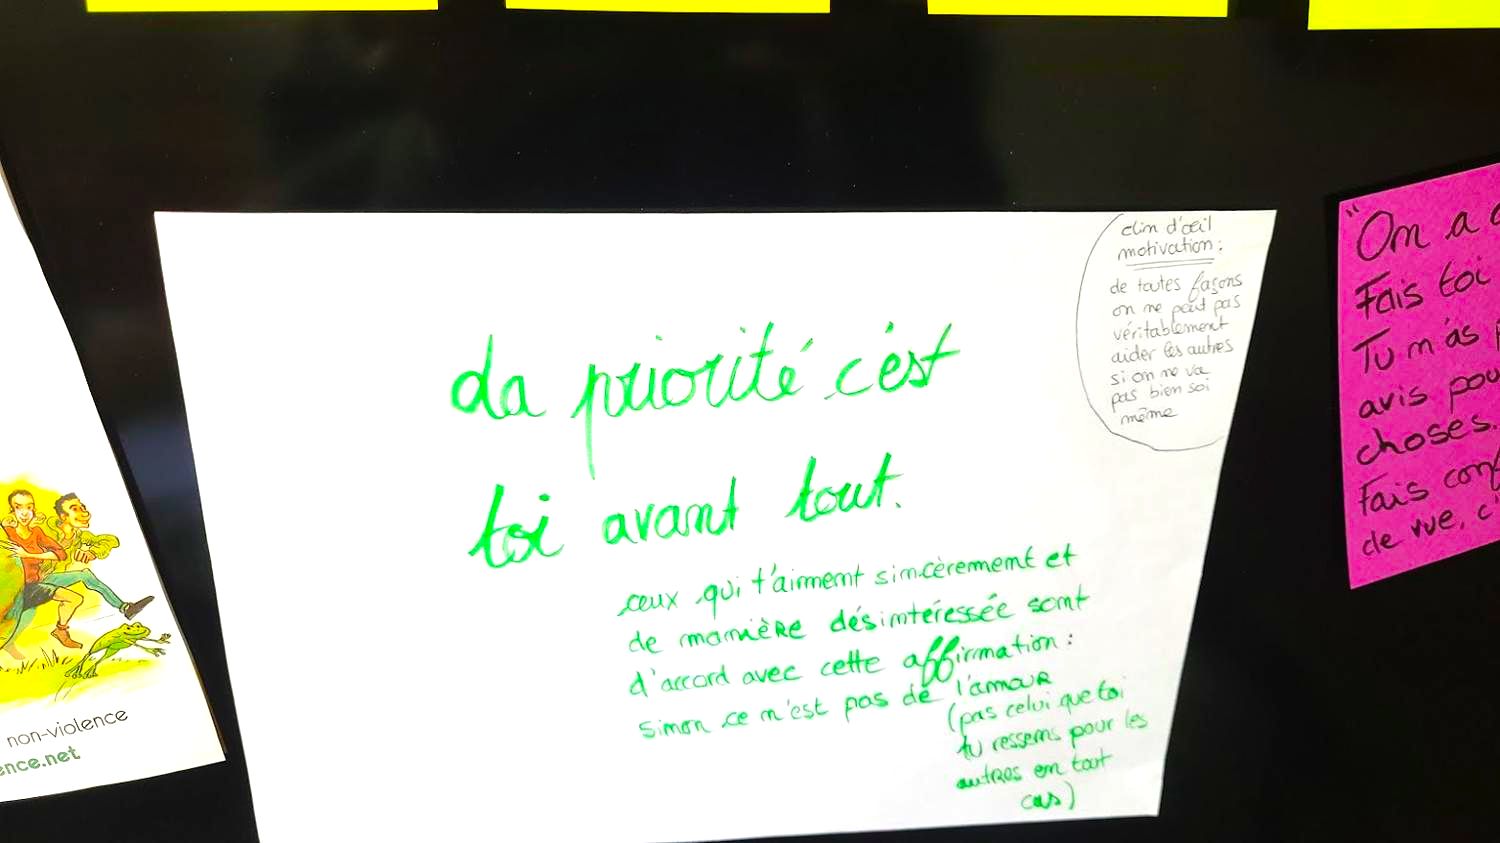 clin d'œil
motivation :
de toutes façons
on ne peut pas
véritablement
aider les autres
si on ne va
pas bien soi
même
La priorité c'est
toi avant tout.
ceux qui t'aiment sincèrement et
de manière désintéressée sont
d'accord avec cette affirmation :
sinon ce n'est pas de l'amour
(pas celui que toi
tu ressens pour les
autres en tout
cas)
"On a
Fais toi
Tu m'as
avis pou
choses.
Fais conf
de vue, c'
non-violence
ence.net